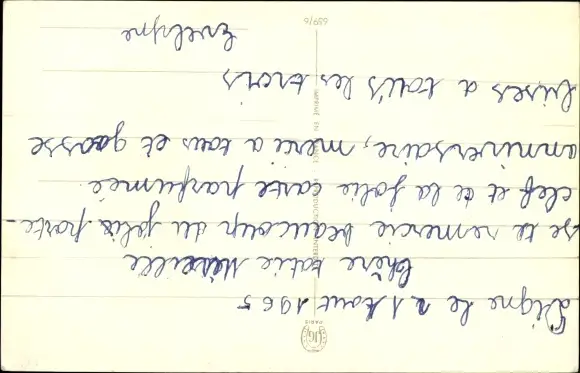 Digne le 21 Aout 1965
Chère tatie Mireille
Je te remercie beaucoup du joli porte-
clef et de la jolie carte parfumée
anniversaire, merci a tous et grosse
bises a tous les trois
Evelyne
659/6
IMPRIMÉ EN
REPRODUCTION INTER
JG
PARIS